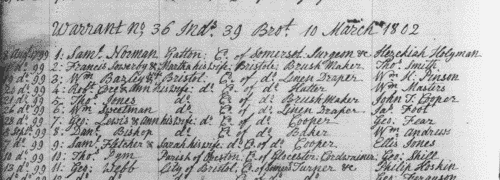 Warrant No 36 Inds. 39 Bro.t 10 March 1802
99 1: Saml. Norman Co. of Somerset Surgeon & Hezekiah Holyman
do. 99 2: Francis & Martha his wife: Bristol: Brush Maker Thos. Smith
do. 99 3: Wm. Bazley Bristol Co. of do. Linen Draper Wm. K. Pinson
do. 99 4: Robt. & Ann his wife: do. Co. of do. Hatter Wm. Masters
do. 99 5: Thos. Jones do. Co. of do. Brush Maker John T. Cooper
do. 99 6: Wm. do. Co. of do. Linen Draper Jas. Foot
do. 99 7: Geo: Lewis & Ann his wife: do. Co. of do. Cooper Geo: Fear
99 8: Danl. Bishop do. Co. of do. Baker Wm. Andrews
do. 99 9: Saml. Fletcher & Sarah his wife: do. Co. of do. Cooper Ellis Jones
do. 99 10: Thos. Pym Parish of Co. of Glocester Cordwainer Geo: Shill
do. 99 11: Geo: Webb City of Bristol, Co. of Turner & Philip Hoskin
Geo: Ferguson